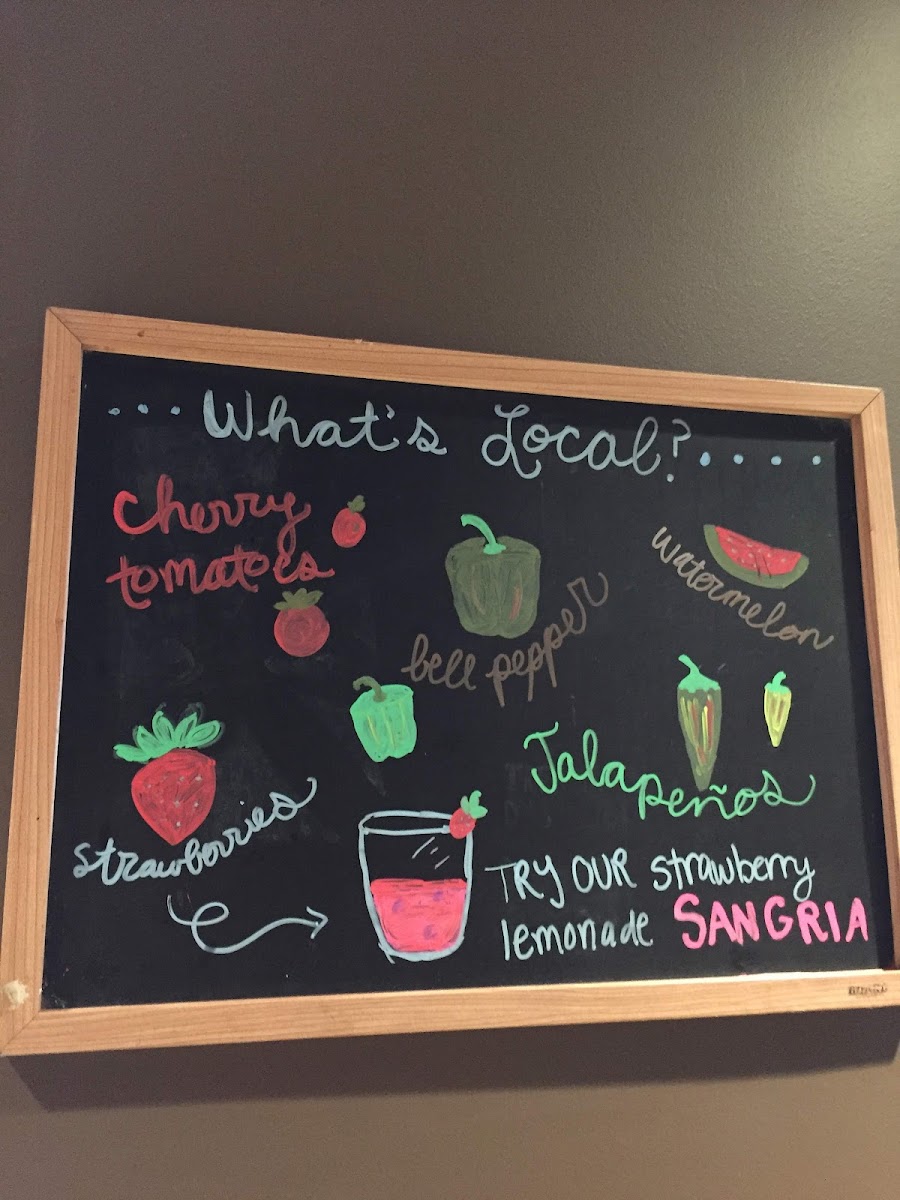 ...What's Local?.....
Cherry
tomatoes
bell pepper
watermelon
Jalapeños
strawberries
TRY OUR strawberry
lemonade SANGRIA